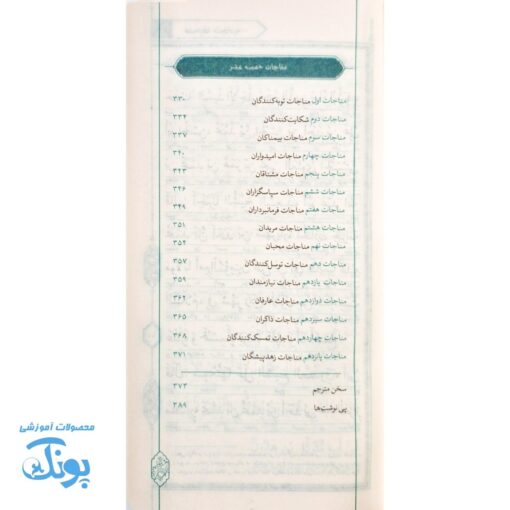 مناجات خمسه عشر
مناجات اول مناجات توبه‌کنندگان ۳۳۰
مناجات دوم شکایت‌کنندگان ۳۳۴
مناجات سوم مناجات بیمناکان ۳۳۷
مناجات چهارم مناجات امیدواران ۳۴۰
مناجات پنجم مناجات مشتاقان ۳۴۳
مناجات ششم مناجات سپاسگزاران ۳۴۶
مناجات هفتم مناجات فرمانبرداران ۳۴۹
مناجات هشتم مناجات مریدان ۳۵۱
مناجات نهم مناجات محبان ۳۵۴
مناجات دهم مناجات توسل‌کنندگان ۳۵۷
مناجات یازدهم مناجات نیازمندان ۳۵۹
مناجات دوازدهم مناجات عارفان ۳۶۲
مناجات سیزدهم مناجات ذاکران ۳۶۵
مناجات چهاردهم مناجات تمسک‌کنندگان ۳۶۸
مناجات پانزدهم مناجات زهدپیشگان ۳۷۱
سخن مترجم ۳۷۳
پی نوشت‌ها ۳۸۹
محصولات آموزشی
پونک